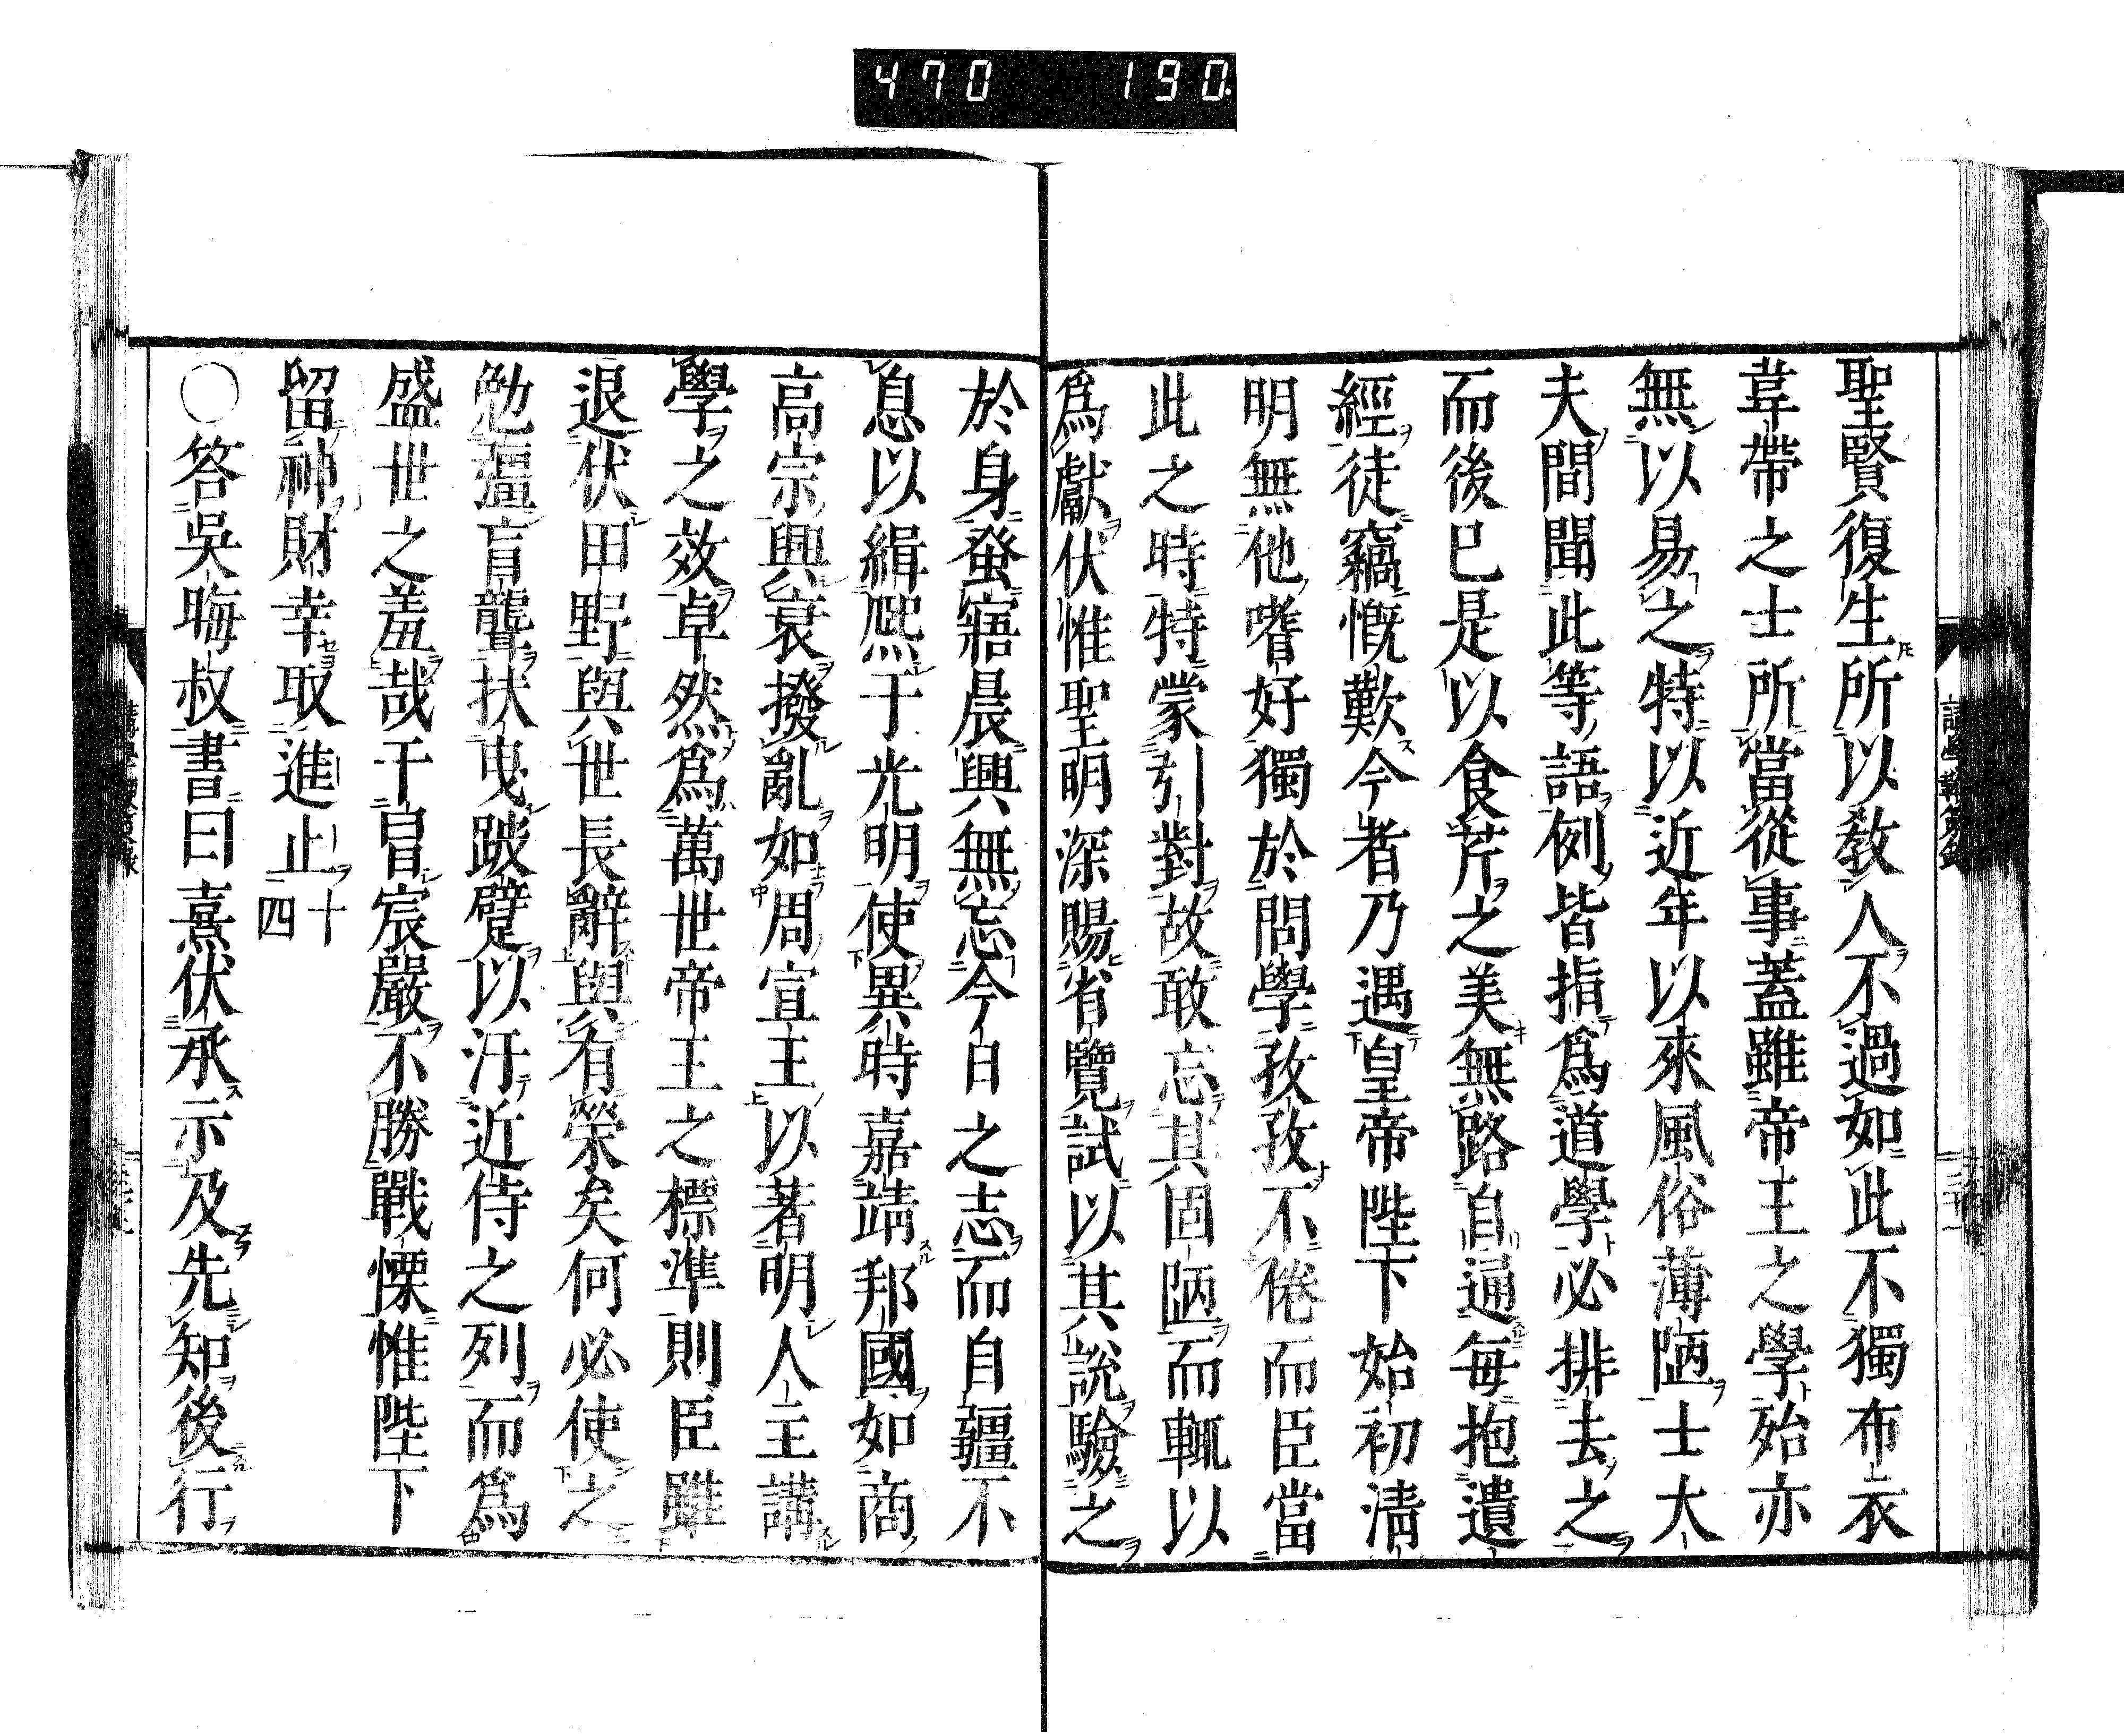 470 190.
聖賢復生所以敎人不過如此不獨布衣
韋帶之士所當從事蓋雖帝王之學殆亦
無以易之特以近年以來風俗薄陋士大
夫間聞此等語例皆指爲道學必排去之
而後已是以食芹之美無路自通每抱遺
經徒竊慨歎今者乃遇皇帝陛下始初淸
明無他嗜好獨於問學孜孜不倦而臣當
此之時特蒙引對故敢忘其固陋而輒以
爲獻伏惟聖明深賜省覽試以其說驗之
於身蚤寤晨興無忘今日之志而自彊不
息以緝熙于光明使異時嘉靖邦國如商
高宗興衰撥亂如周宣王以著明人主講
學之效卓然爲萬世帝王之標準則臣雖
退伏田野與世長辭與有榮矣何必使之
勉彊盲聾扶曳跛躄以汙近侍之列而爲
盛世之羞哉干冒宸嚴不勝戰慄惟陛下
留神財幸取進止十四
○答吳晦叔書曰熹伏承示及先知後行